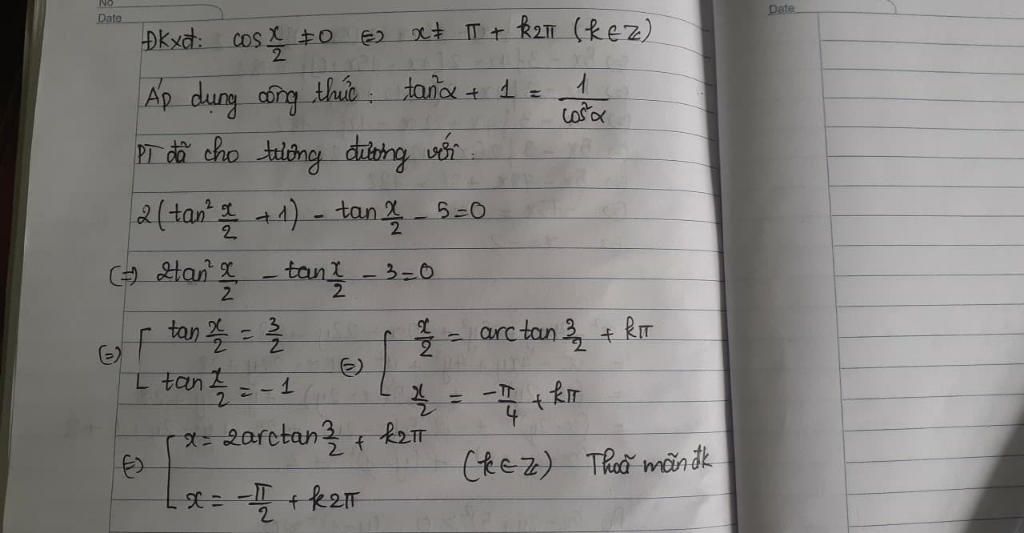 No
Date
Date
Đkxđ: cos x/2 ≠ 0 ⇔ x ≠ π + k2π (k ∈ Z)
Áp dụng công thức: tan²α + 1 = 1/cos²α
PT đã cho tương đương với:
2(tan² x/2 + 1) - tan x/2 - 5 = 0
(=) 2tan² x/2 - tan x/2 - 3 = 0
(=) [ tan x/2 = 3/2 (=) [ x/2 = arctan 3/2 + kπ
tan x/2 = -1 x/2 = -π/4 + kπ
(=) [ x = 2arctan 3/2 + k2π
(k ∈ Z) Thoã mãn đk
x = -π/2 + k2π